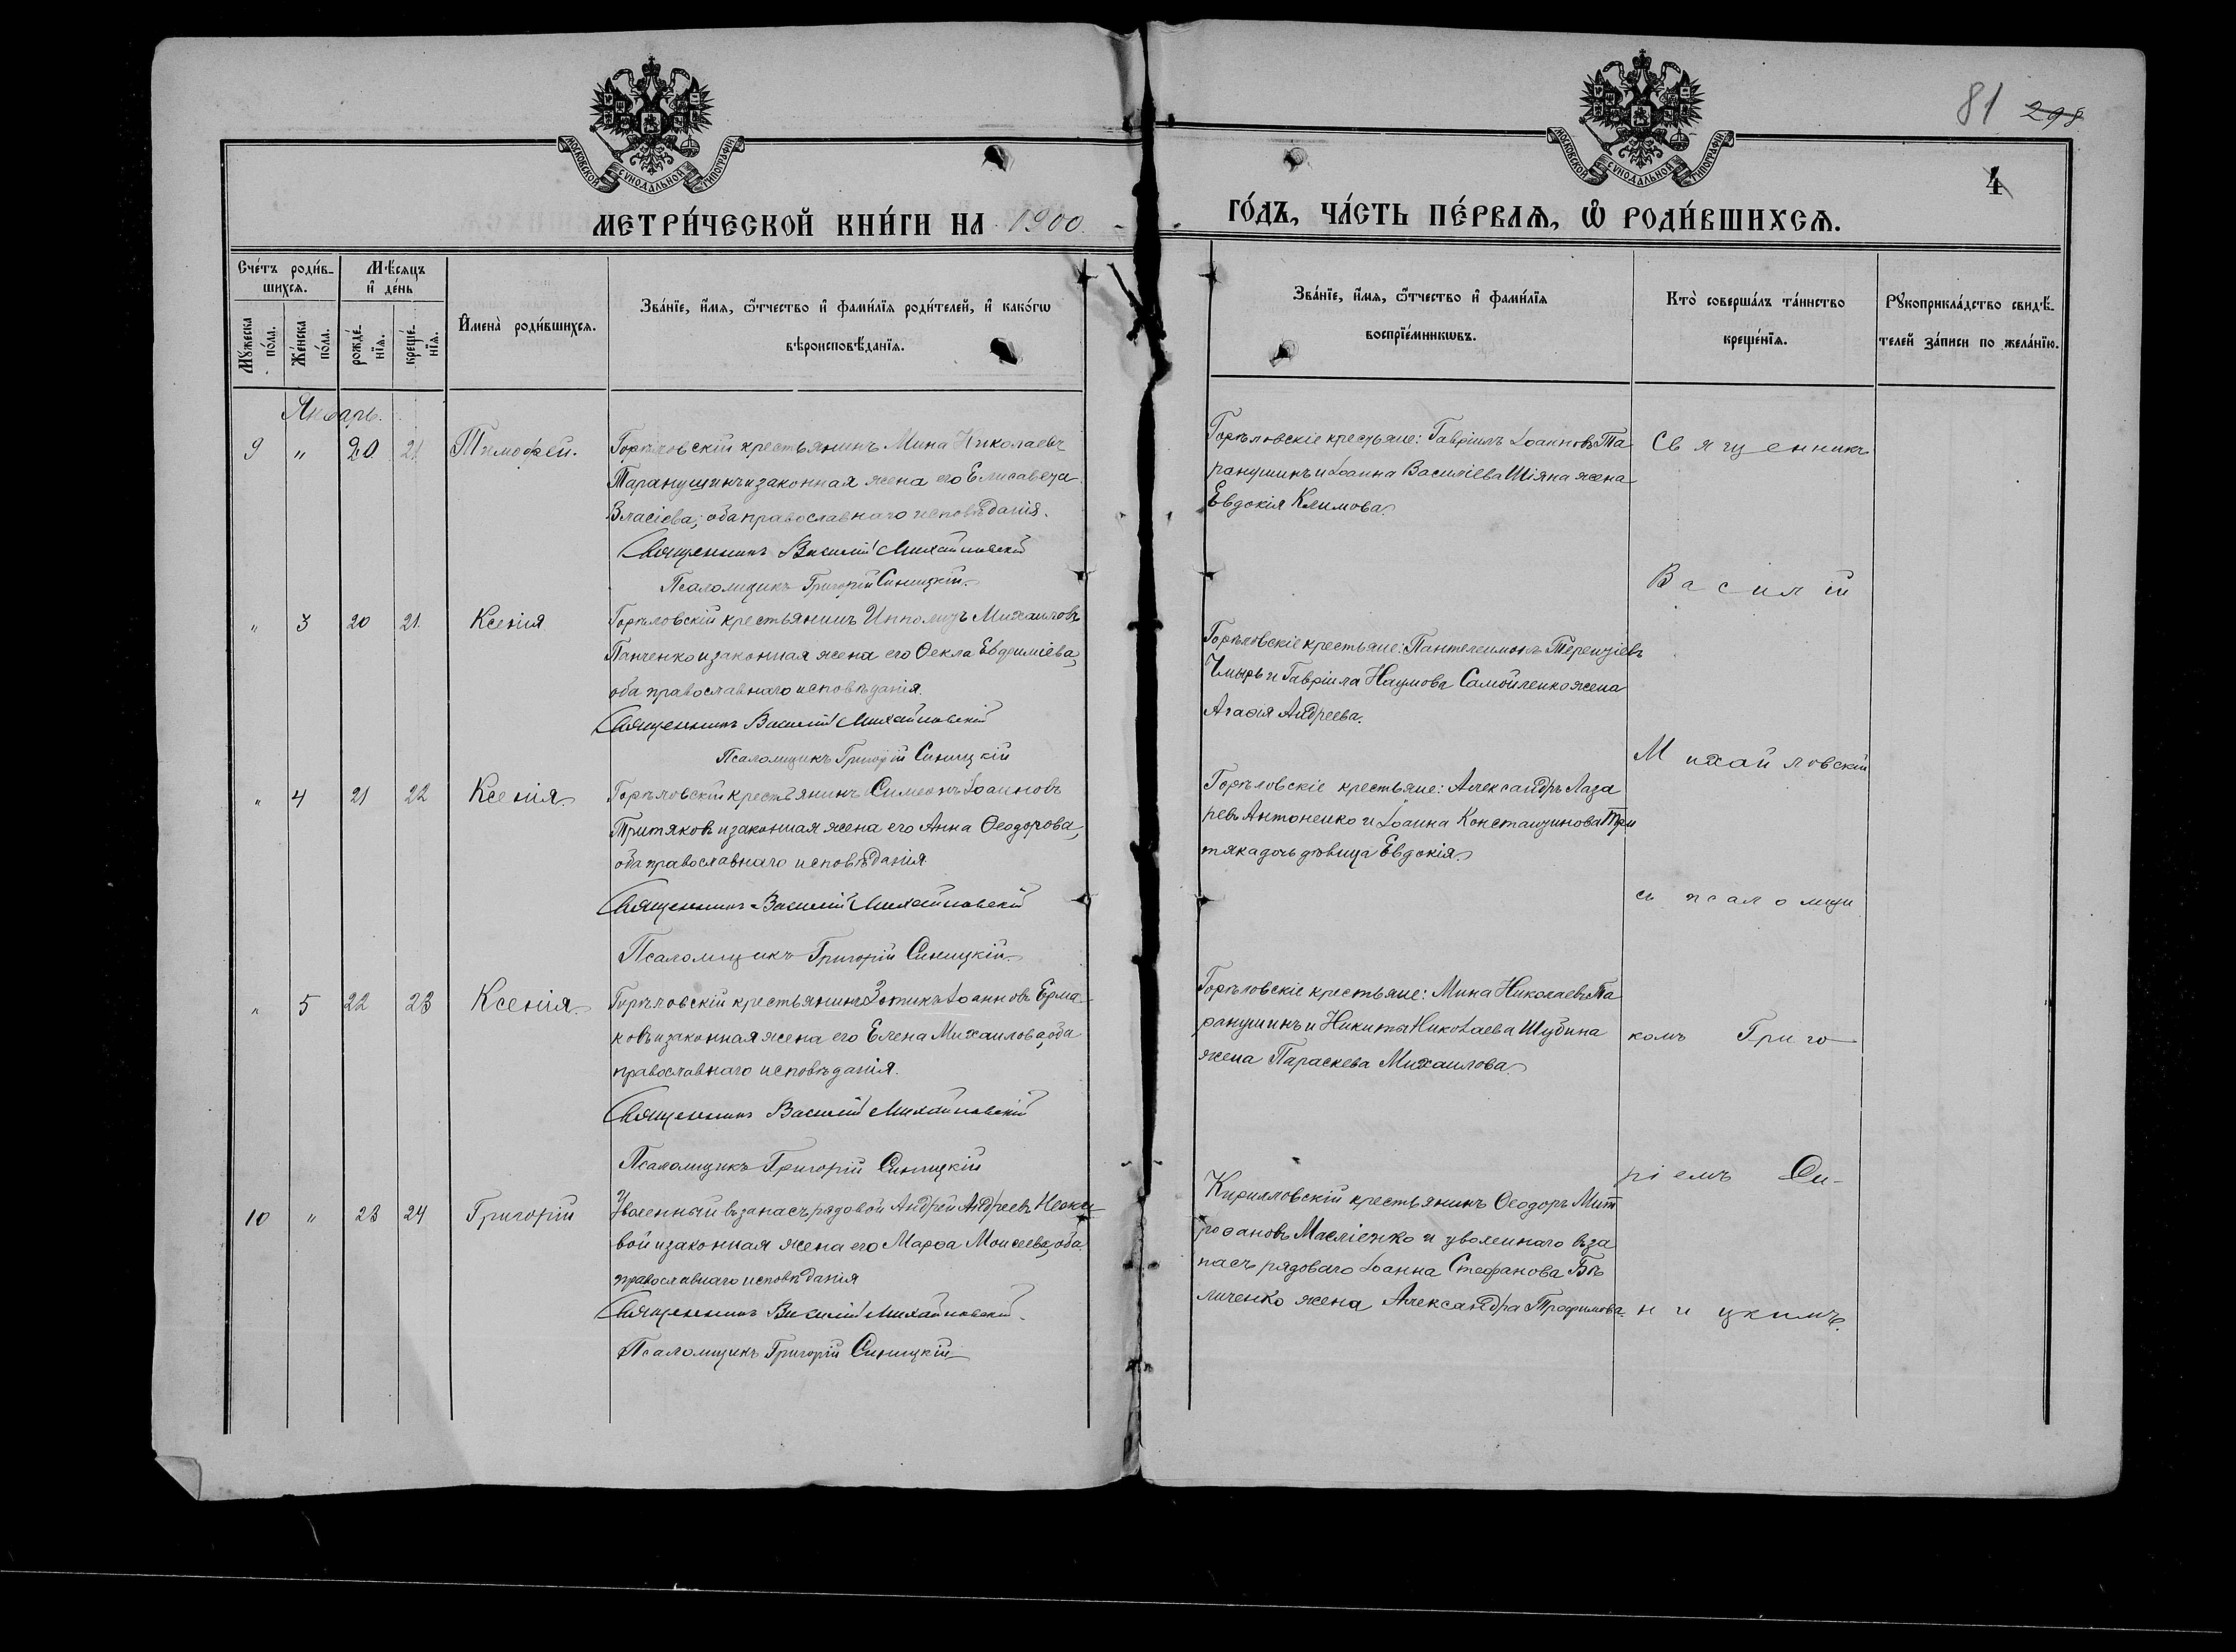 81 298
4
МОСКОВСКОЙ СѴНОДАЛЬНОЙ ТИПОГРАФІИ
МОСКОВСКОЙ СѴНОДАЛЬНОЙ ТИПОГРАФІИ
МЕТРИ́ЧЕСКОЙ КНИ́ГИ НА 1900
ГО́ДЪ, ЧА́СТЬ ПЕ́РВАѦ, Ѡ҆ РОДИ́ВШИХСѦ.
Сче́тъ роди́в-
шихсѧ.
Мѣ́сѧцъ
и҆ де́нь
Мꙋ́жеска
по́ла.
Же́нска
по́ла.
рожде́-
нїѧ.
креще́-
нїѧ.
И҆мена̀ роди́вшихсѧ.
Зва́нїе, и҆́мѧ, ѻ҆́тчество и҆ фами́лїѧ роди́телей, и҆ како́гѡ
вѣроисповѣ́данїѧ.
Зва́нїе, и҆́мѧ, ѻ҆́тчество и҆ фами́лїѧ
воспрїе́мникѡвъ.
Кто̀ соверша́лъ та́инство
креще́нїѧ.
Рꙋкоприкла́дство свидѣ́-
телей за́писи по жела́нїю.
Январь.
9 " 20 21 Тимофей.
Горѣловскій крестьянинъ Мина Николаевъ
Таранушинъ и законная жена его Елисавета
Власіева; оба православнаго исповѣданія.
Священникъ Василій Михайловскій
Псаломщикъ Григорій Синицкій.
Горѣловскіе крестьяне: Гавріилъ Іоанновъ Та
ранушинъ и Іоанна Василіева Шіяна жена
Евдокія Климова.
" 3 20 21. Ксенія
Горѣловскій крестьянинъ Ипполитъ Михаиловъ
Панченко и законная жена его Ѳекла Евфиміева,
оба православнаго исповѣданія.
Священникъ Василій Михайловскій
Псаломщикъ Григорій Синицкій
Горѣловскіе крестьяне: Пантелеимонъ Терентіевъ
Чмырь и Гавріила Наумова Самойленко жена
Агаѳія Андреева.
" 4 21 22 Ксенія
Горѣловскій крестьянинъ Симеонъ Іоанновъ
Тритяковъ и законная жена его Анна Ѳеодорова,
оба православнаго исповѣданія
Священникъ Василій Михайловскій
Псаломщикъ Григорій Синицкій.
Горѣловскіе крестьяне: Александръ Лаза
ревъ Антоненко и Іоанна Константинова Три
тяка дочь дѣвица Евдокія.
" 5 22 23 Ксенія.
Горѣловскій крестьянинъ Зотикъ Іоанновъ Ерма-
ковъ и законная жена его Елена Михаилова, оба
православнаго исповѣданія.
Священникъ Василій Михайловскій
Псаломщикъ Григорій Синицкій
Горѣловскіе крестьяне: Мина Николаевъ Та
ранушинъ и Никиты Николаева Шубина
жена Параскева Михаилова.
10 " 23 24 Григорій
Уволенный въ запасъ рядовой Андрей Андреевъ
вой и законная жена его Марѳа Моисеева, оба
православнаго исповѣданія
Священникъ Василій Михайловскій.
Псаломщикъ Григорій Синицкій
Кирилловскій крестьянинъ Ѳеодоръ Мит
рофановъ Масліенко и уволеннаго въ за
пасъ рядоваго Іоанна Стефанова Бѣ
личенко жена Александра Трофимова.
Священникъ
Василій
Михайловскій
съ псаломщи
комъ Григо
ріемъ Си-
ницкимъ.